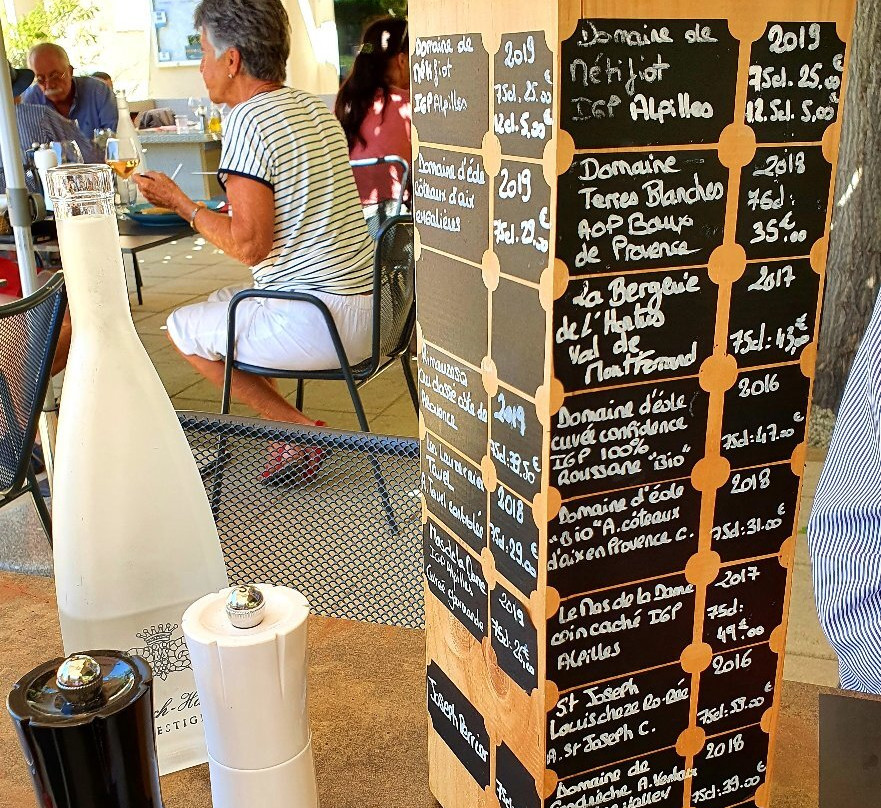 Domaine de
Métifiot
IGP Alpilles
2019
75cl. 25.00
12.5cl 5,00€
Domaine d'éole
côteaux d'aix
2019
75cl. 29.00
du classé côte de
Provence
2019
75cl: 39.50€
Tavel
A. Tavel contrôlée
2018
75cl: 29.00
Mas de la Dame
IGP Alpilles
Cuvée Gourmande
2019
75cl: 26,00
Joseph Perrier
75cl
Domaine de
Métifiot
IGP Alpilles
2019
75cl. 25.00
12.5cl 5,00€
Domaine
Terres Blanches
AOP Baux
de Provence
2018
75cl:
35€.00
La Bergerie
de L'Hortus
Val de
Montferrand
2017
75cl: 43,00€
Domaine d'éole
cuvée confidence
IGP 100%
Roussane "Bio"
2016
75cl: 47.00€
Domaine d'éole
"Bio" A. côteaux
d'aix en Provence C.
2018
75cl: 31.00€
Le Mas de la Dame
coin caché IGP
Alpilles
2017
75cl:
49€.00
St Joseph
A. St Joseph C.
2016
75cl: 59.00€
Domaine de
2018
75cl: 39.00€